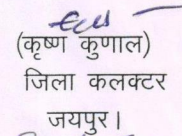 (कृष्ण कुणाल)
जिला कलक्टर
जयपुर।